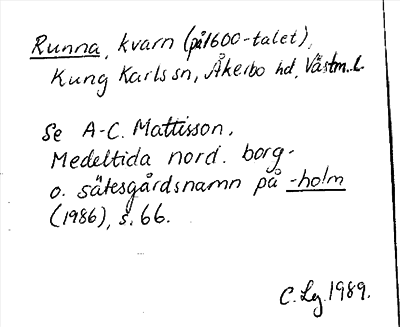 Runna, kvarn (på 1600-talet),
Kung Karls sn, Åkerbo hd, Västm. l.
Se A-C. Mattisson,
Medeltida nord. borg-
o. sätesgårdsnamn på -holm
(1986), s. 66.
C. Lg. 1989.